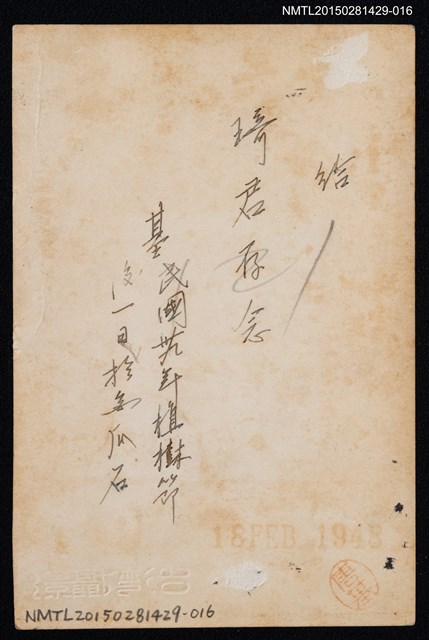 NMTL20150281429-016
給
琦君存念
基 民國卅九年植樹節
後一日於金瓜石
18 FEB 1948
NMTL20150281429-016